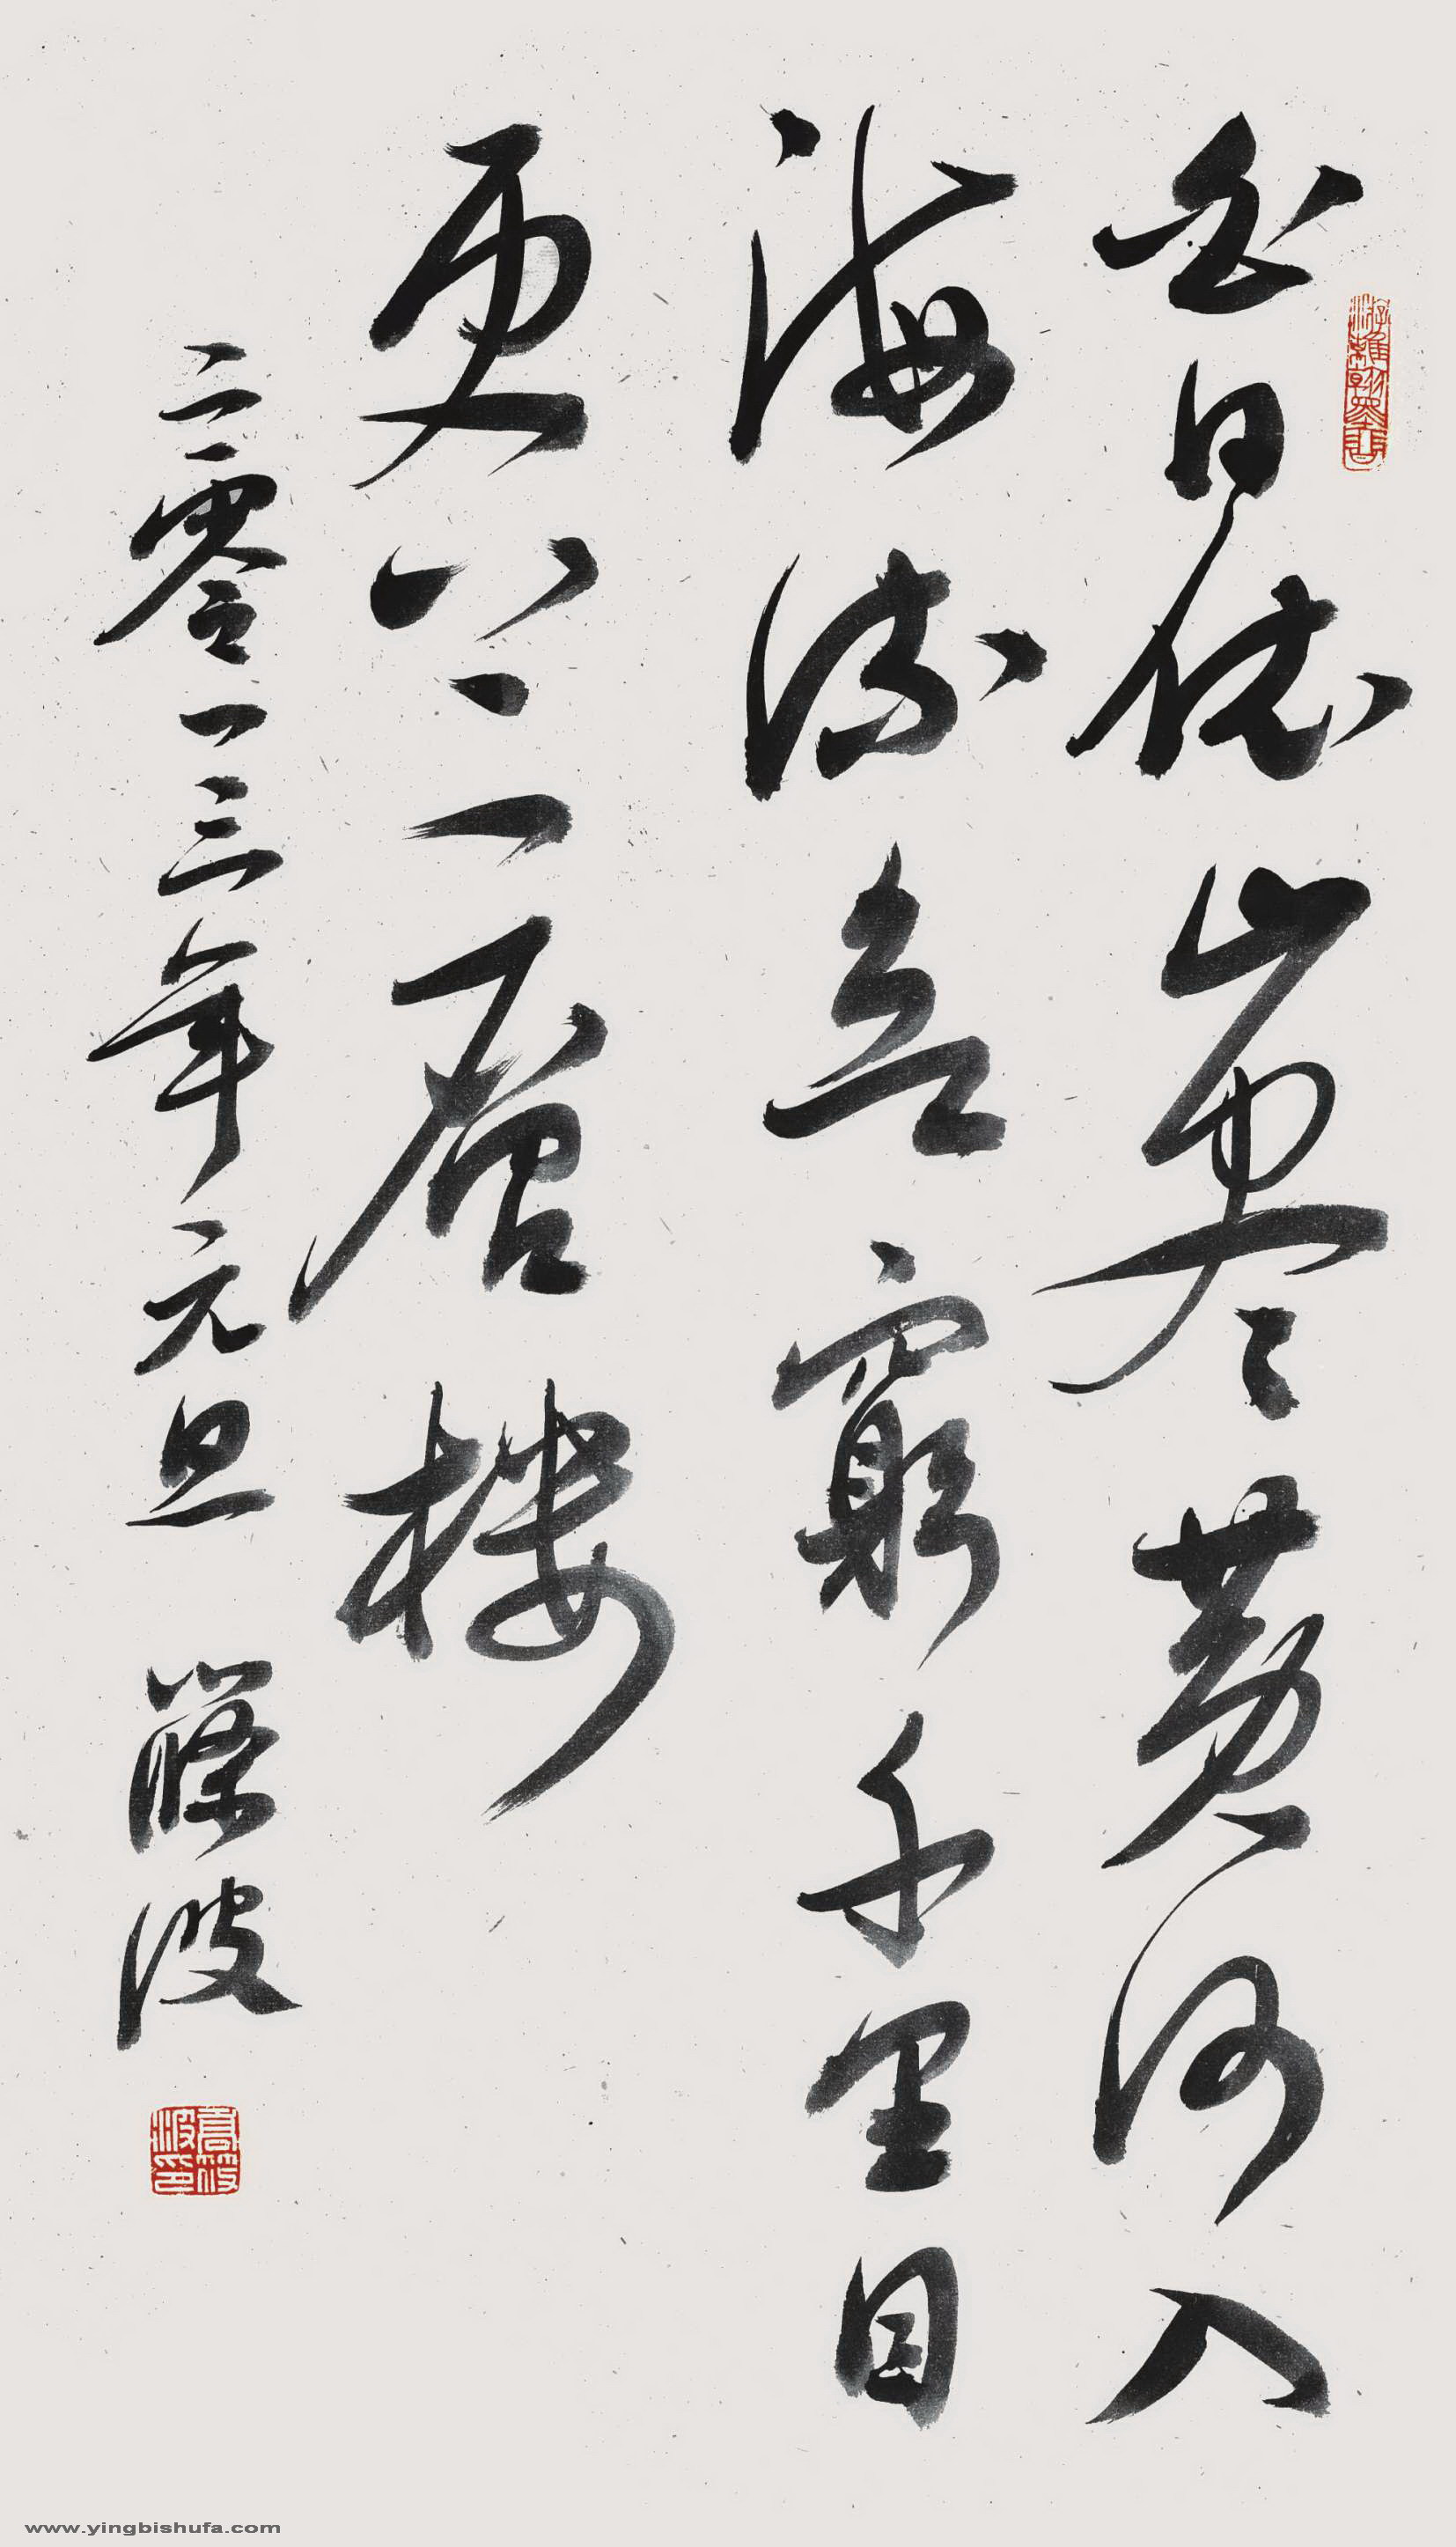 白日依山尽黄河入
海流欲窮千里目
更上一層楼
二零一三年元旦 篠波
www.yingbishufa.com